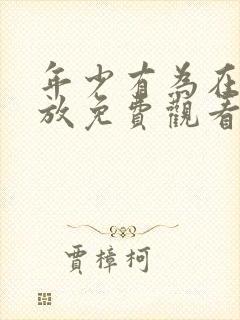 年少有為在
放免費觀看
賈樟柯